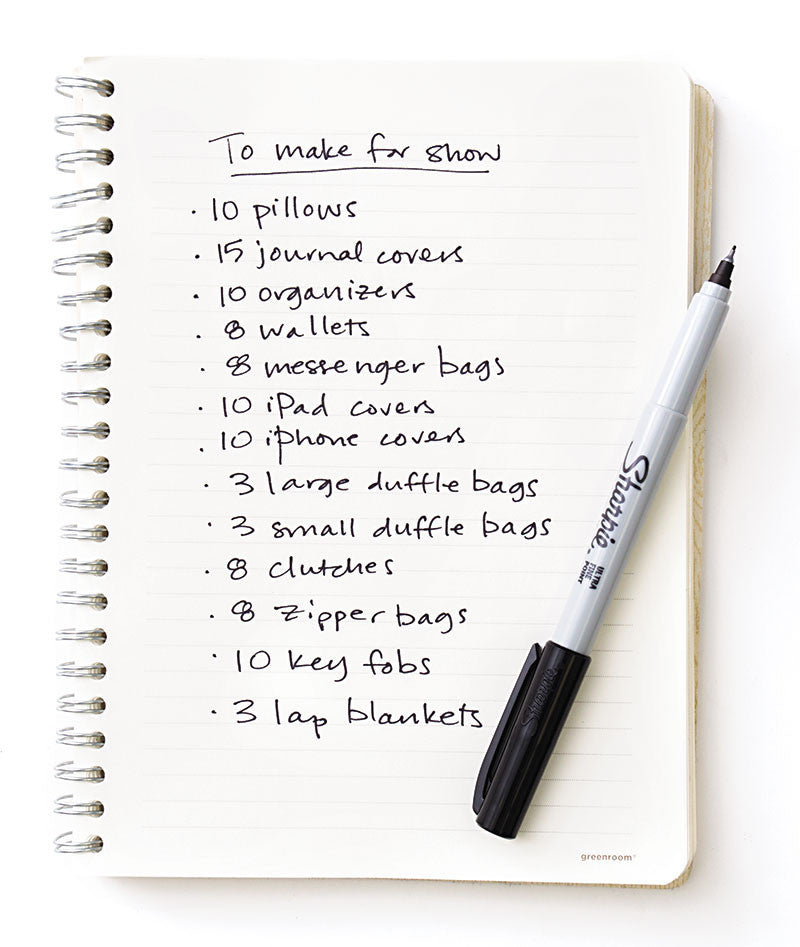 To make for show
· 10 pillows
· 15 journal covers
· 10 organizers
· 8 wallets
· 8 messenger bags
· 10 iPad covers
· 10 iphone covers
· 3 large duffle bags
· 3 small duffle bags
· 8 clutches
· 8 zipper bags
· 10 key fobs
· 3 lap blankets
Sharpie
ULTRA
FINE
POINT
Sharpie
greenroom